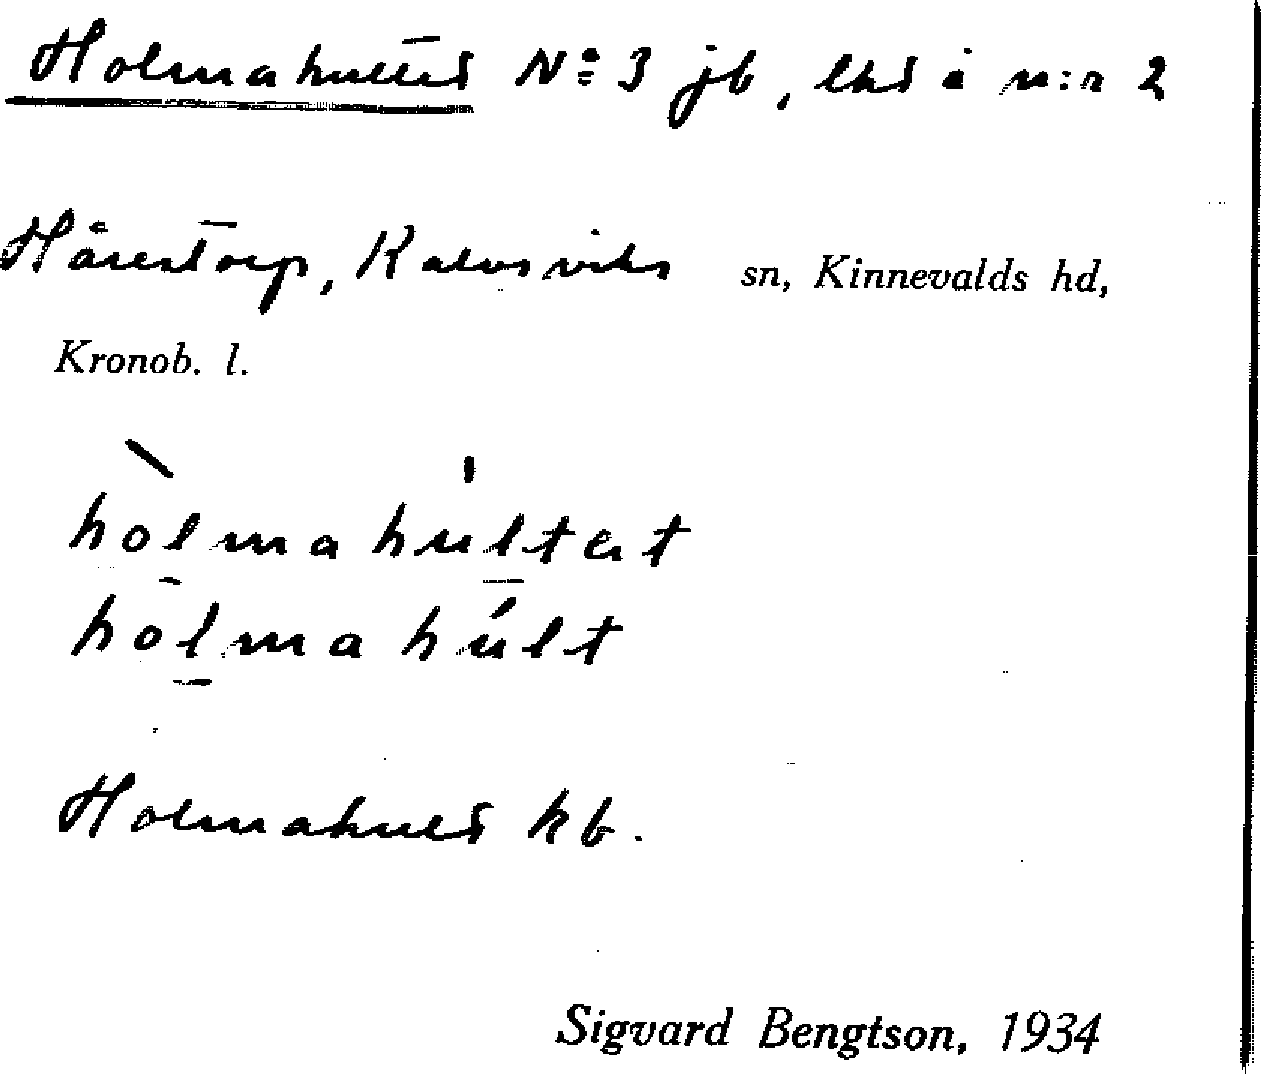 Holmahultet No 3 jb, lhd å n:r 2
Hårestorp, Kalvsviks sn, Kinnevalds hd,
Kronob. l.
hòlmahultət
hòlmahúlt
Holmahult kb.
Sigvard Bengtson, 1934